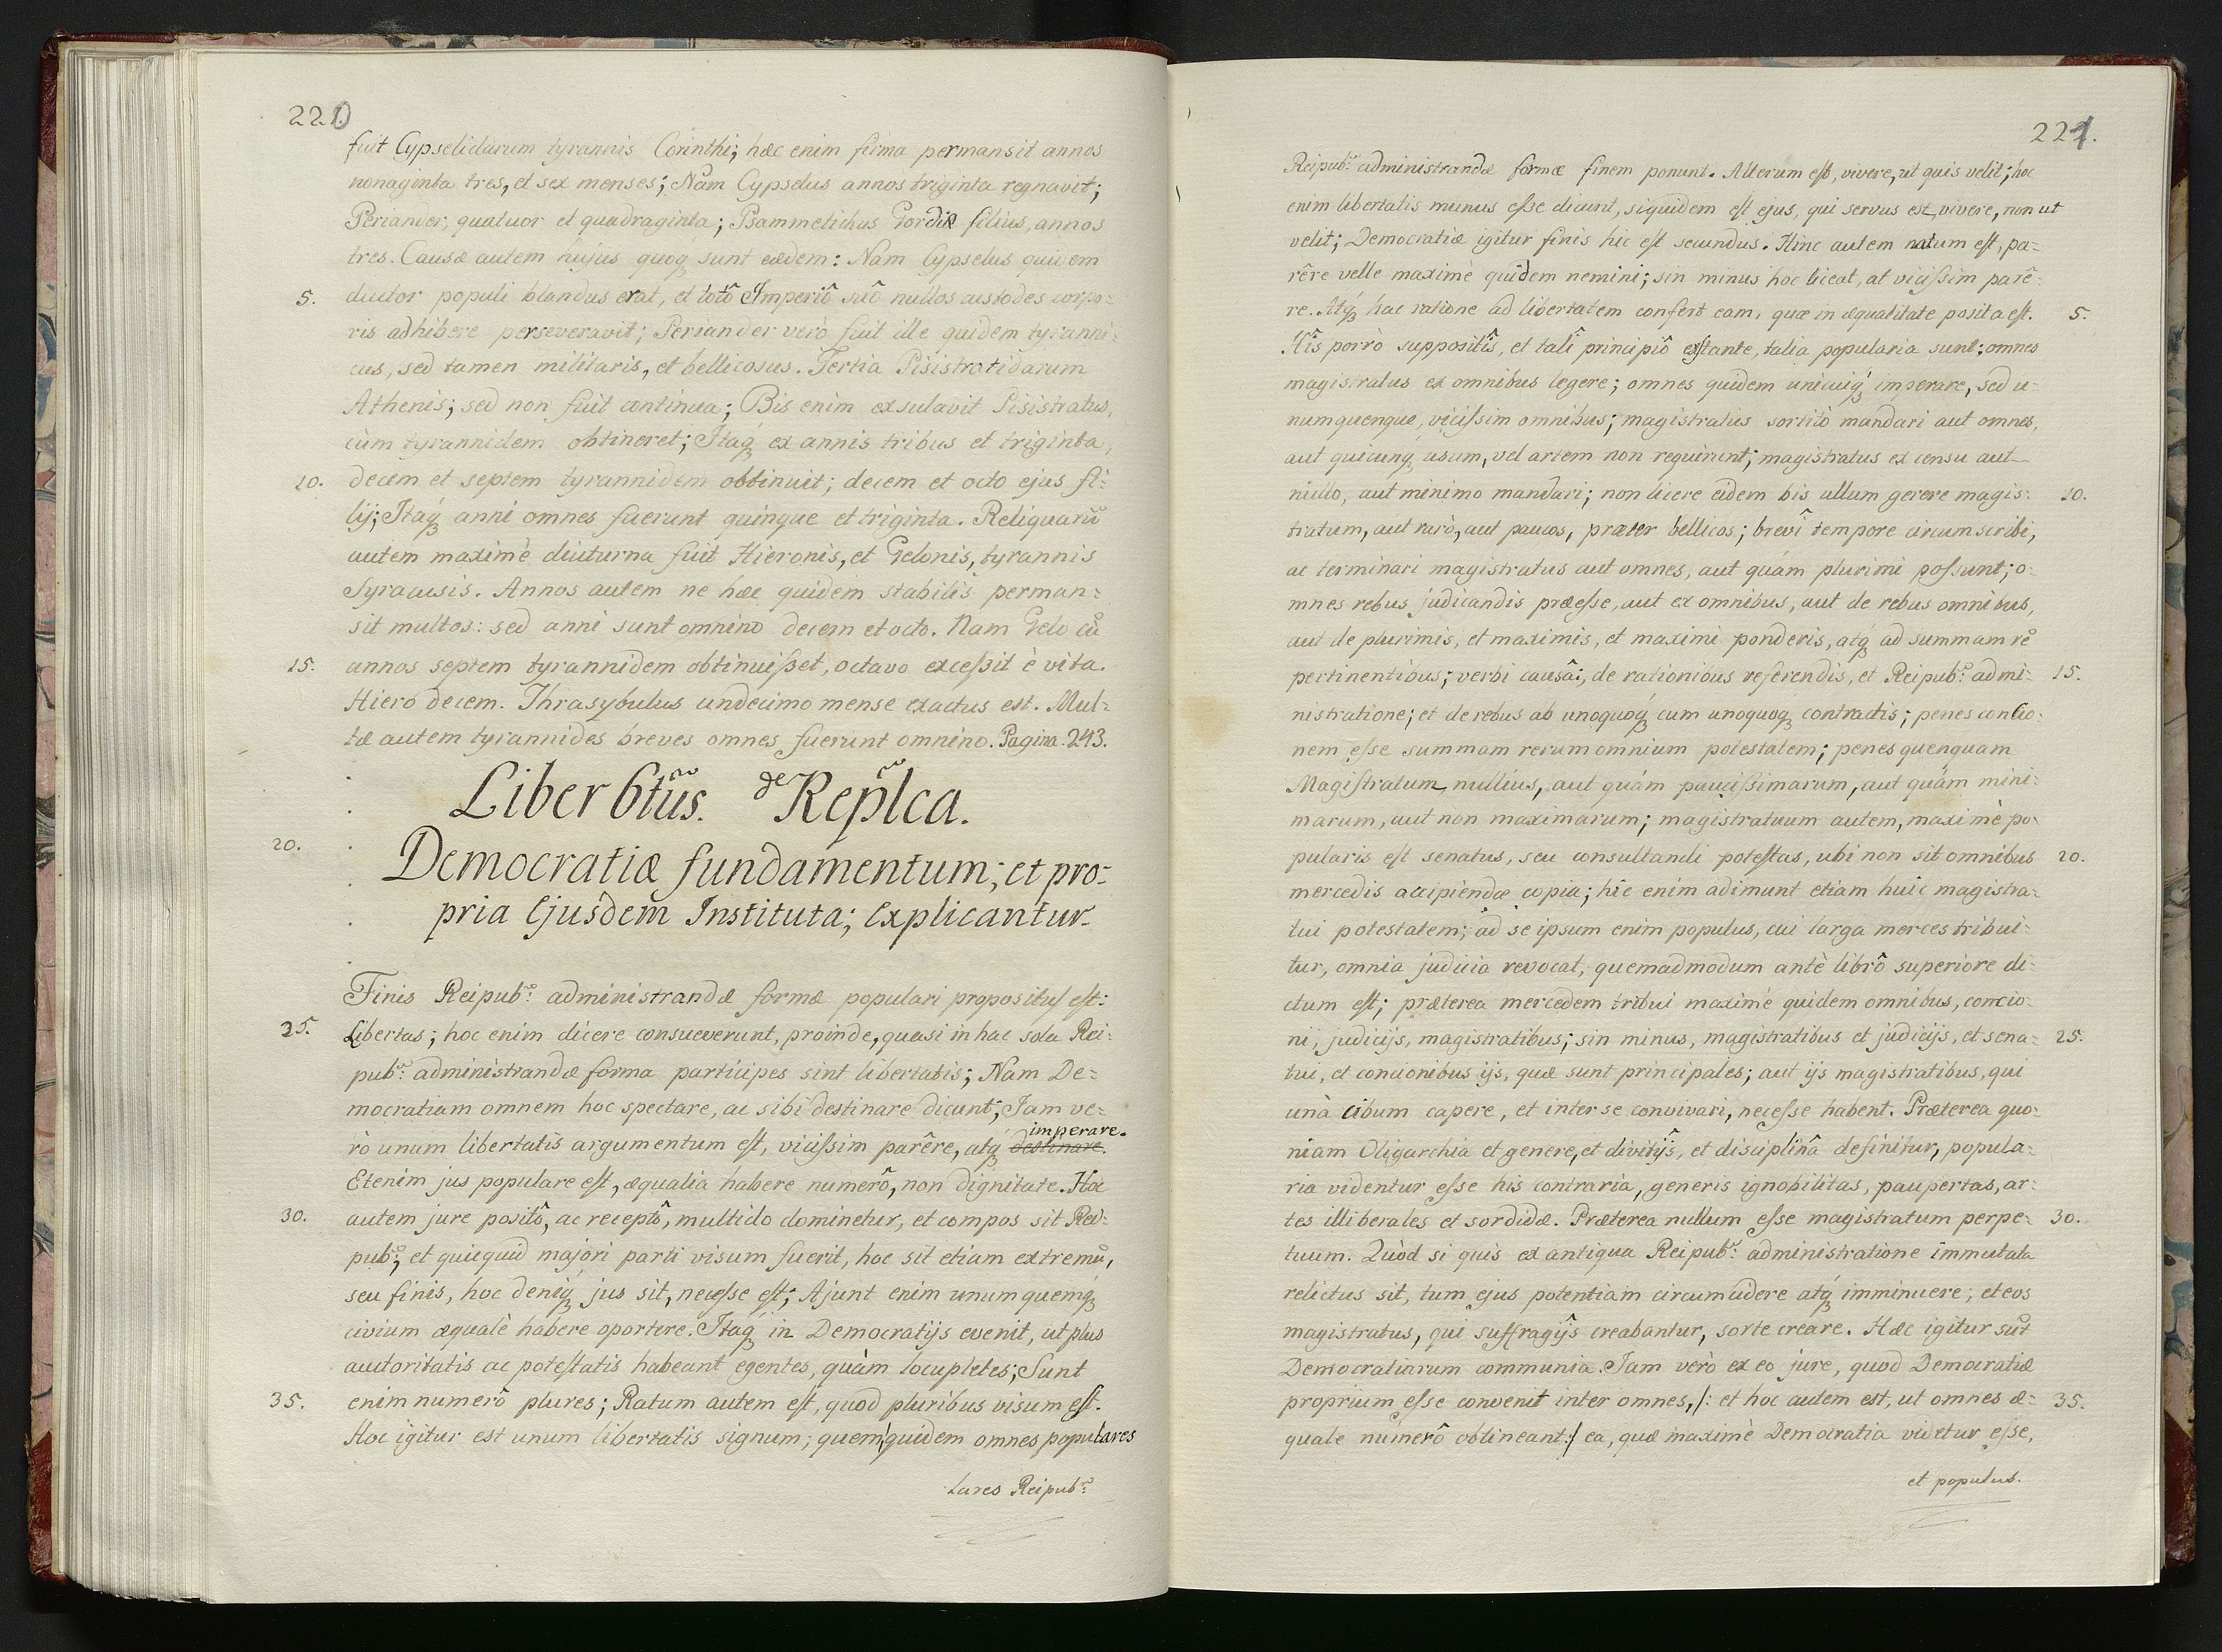 220
fuit Cypselidarum tyrannis Corinthi; hæc enim firma permansit annos
nonaginta tres, et sex menses; Nam Cypselus annos triginta regnavit;
Periander, quatuor et quadraginta; Psammetichus Gordiæ filius, annos
tres. Causæ autem hujus quoqꝫ sunt eædem: Nam Cypselus quidem
5. ductor populi blandus erat, et totô Imperiô suô nullos custodes corpo-
ris adhibere perseveravit; Periander verò fuit ille quidem tyranni-
cus, sed tamen militaris, et bellicosus. Tertia Pisistratidarum
Athenis; sed non fuit continua; Bis enim exsulavit Pisistratus,
cùm tyrannidem obtineret; Itaqꝫ ex annis tribus et triginta,
10. decem et septem tyrannidem obtinuit; decem et octo ejus fi-
lij; Itaqꝫ anni omnes fuerunt quinque et triginta. Reliquarũ
autem maximè diuturna fuit Hieronis, et Gelonis, tyrannis
Syracusis. Annos autem ne hæc quidem stabilis perman-
sit multos: sed anni sunt omnino decem et octo. Nam Gelo cũ
15. annos septem tyrannidem obtinuiſset, octavo exceſsit è vita.
Hiero decem. Thrasybulus undecimo mense exactus est. Mul-
tæ autem tyrannides breves omnes fuerunt omnino. Pagina. 243.
Liber 6tũs. de Rep̃lca.
20.
Democratiæ fundamentum; et pro-
pria Ejusdem Instituta; Explicantur.
Finis Reipubᶜ: administrandæ formæ populari propositus eſt:
25. Libertas; hoc enim dicere consueverunt, proinde, quasi in hac sola Rei-
pubᶜ: administrandæ forma participes sint libertatis; Nam De-
mocratiam omnem hoc spectare, ac sibi destinare dicunt; Jam ve-
imperare.
rò unum libertatis argumentum eſt, viciſsim parêre, atqꝫ destinare.
Etenim jus populare eſt, æqualia habere numerô, non dignitate. Hoc
30. autem jure positô, ac receptô, multido dominetur, et compos sit Rei-
pubᶜ; et quicquid majori parti visum fuerit, hoc sit etiam extremũ,
seu finis, hoc deniqꝫ jus sit, neceſse eſt; Ajunt enim unumquemqꝫ
civium æqualè habere oportere. Itaqꝫ in Democratijs evenit, ut plus
autoritatis ac poteſtatis habeant egentes, quàm locupletes; Sunt
35. enim numerô plures; Ratum autem eſt, quod pluribus visum eſt.
Hoc igitur est unum libertatis signum; quem quidem omnes populares
lares Reipubᶜ:
221.
Reipubᶜ: administrandæ formæ finem ponunt. Alterum eſt, vivere, ut quis velit; hoc
enim libertatis munus eſse dicunt, siquidem eſt ejus, qui servus est, vivere, non ut
velit; Democratiæ igitur finis hic eſt secundus. Hinc autem natum est, pa-
rêre velle maximè quidem nemini; sin minus hoc liceat, at viciſsim parê-
re. Atqꝫ hac ratione ad libertatem confert eam, quæ in æqualitate posita eſt. 5.
Hîs porrò suppositîs, et talî principiô exſtante, talia popularia sunt; omnes
magistratus ex omnibus legere; omnes quidem unicuiqꝫ imperare, sed u-
numquenque, viciſsim omnibus; magistratus sortitò mandari aut omnes,
aut quicunqꝫ usum, vel artem non requirunt; magistratus ex censu aut
nullo, aut minimo mandari; non licere eidem bis ullum gerere magis- 10.
tratum, aut rarò, aut paucos, præter bellicos; brevî tempore circumscribi,
ac terminari magistratus aut omnes, aut quám plurimi poſsunt; o-
mnes rebus judicandis præeſse, aut ex omnibus, aut de rebus omnibus,
aut de plurimis, et maximis, et maximi ponderis, atqꝫ ad summam rẽ
pertinentibus; verbi causâ, de rationibus referendis, et Reipubᶜ: admi- 15.
nistratione; et de rebus ab unoquoqꝫ cum unoquoqꝫ contractis; penes concio-
nem eſse summam rerum omnium potestatem; penes quenquam
Magiſtratum nullius, aut quám pauciſsimarum, aut quám mini-
marum, aut non maximarum; magistratuum autem, maximè po-
pularis eſt senatus, seu consultandi poteſtas, ubi non sit omnibus 20.
mercedis accipiendæ copia; hîc enim adimunt etiam huic magistra-
tui potestatem; ad se ipsum enim populus, cui larga merces tribui-
tur, omnia judicia revocat, quemadmodum antè librô superiore di-
ctum eſt; præterea mercedem tribui maximè quidem omnibus, concio-
ni, judicijs, magistratibus; sin minus, magistratibus et judicijs, et sena- 25.
tui, et concionibus ijs, quæ sunt principales; aut ijs magistratibus, qui
unà cibum capere, et inter se convivari, neceſse habent. Præterea quo-
niam Oligarchia et genere, et divitijs, et disciplinâ definitur, popula-
ria videntur eſse his contraria, generis ignobilitas, paupertas, ar-
tes illiberales et sordidæ. Præterea nullum eſse magistratum perpe- 30.
tuum. Quòd si quis ex antiqua Reipubᶜ: administratione immutata
relictus sit, tum ejus potentiam circumcidere atqꝫ imminuere; et eos
magistratus, qui suffragijs creabantur, sorte creare. Hæc igitur sũt
Democratiarum communia. Jam verò ex eo jure, quod Democratiæ
proprium eſse convenit inter omnes, /: et hoc autem est, ut omnes æ- 35.
quale numerô obtineant:/ ea, quæ maximè Democratia videtur eſse,
et populus.